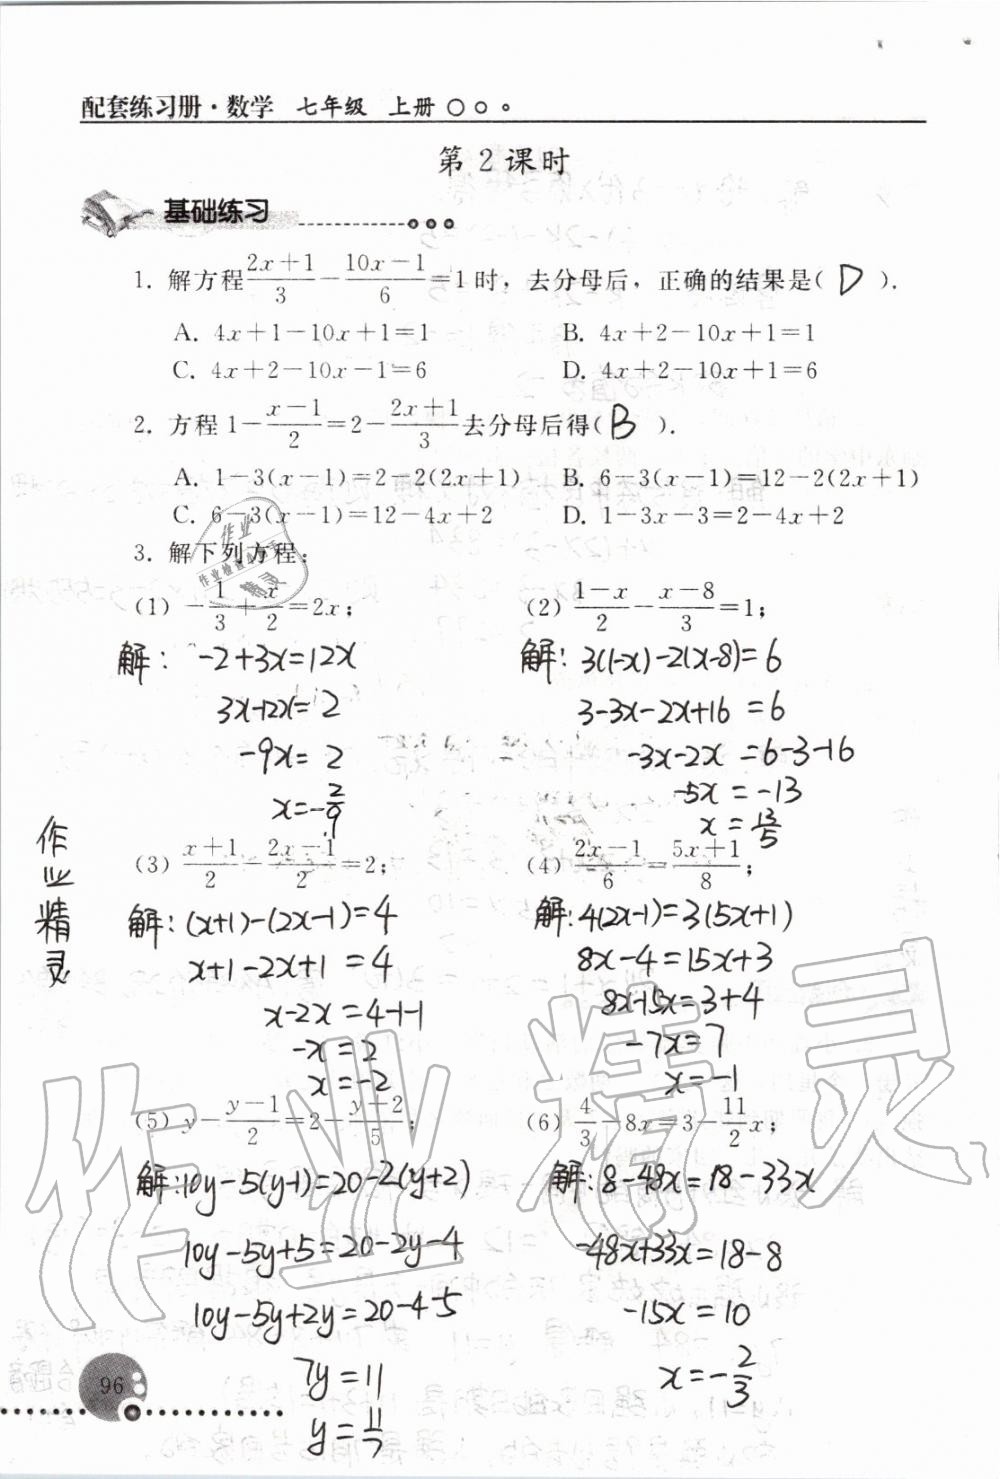 配套练习册·数学 七年级 上册
第2课时
基础练习
1. 解方程 (2x+1)/3 - (10x-1)/6 = 1时，去分母后，正确的结果是( D ).
A. 4x+1-10x+1=1 B. 4x+2-10x+1=1
C. 4x+2-10x-1=6 D. 4x+2-10x+1=6
2. 方程 1 - (x-1)/2 = 2 - (2x+1)/3 去分母后得( B ).
A. 1-3(x-1)=2-2(2x+1) B. 6-3(x-1)=12-2(2x+1)
C. 6-3(x-1)=12-4x+2 D. 1-3x-3=2-4x+2
3. 解下列方程：
(1) -1/3 + x/2 = 2x; (2) (1-x)/2 - (x-8)/3 = 1;
解： -2+3x=12x 解: 3(1-x)-2(x-8)=6
3x-12x=2 3-3x-2x+16=6
-9x=2 -3x-2x=6-3-16
x=-2/9 -5x=-13
x=13/5
(3) (x+1)/2 - (2x-1)/2 = 2; (4) (2x-1)/6 = (5x+1)/8;
解: (x+1)-(2x-1)=4 解: 4(2x-1)=3(5x+1)
x+1-2x+1=4 8x-4=15x+3
x-2x=4-1-1 8x-15x=3+4
-x=2 -7x=7
x=-2 x=-1
(5) y - (y-1)/2 = 2 - (y-2)/5; (6) 4/3 - 8x = 3 - 11/2 x;
解: 10y-5(y-1)=20-2(y+2) 解: 8-48x=18-33x
10y-5y+5=20-2y-4 -48x+33x=18-8
10y-5y+2y=20-4-5 -15x=10
7y=11 x=-2/3
y=11/7
作业精灵
作业精灵
96